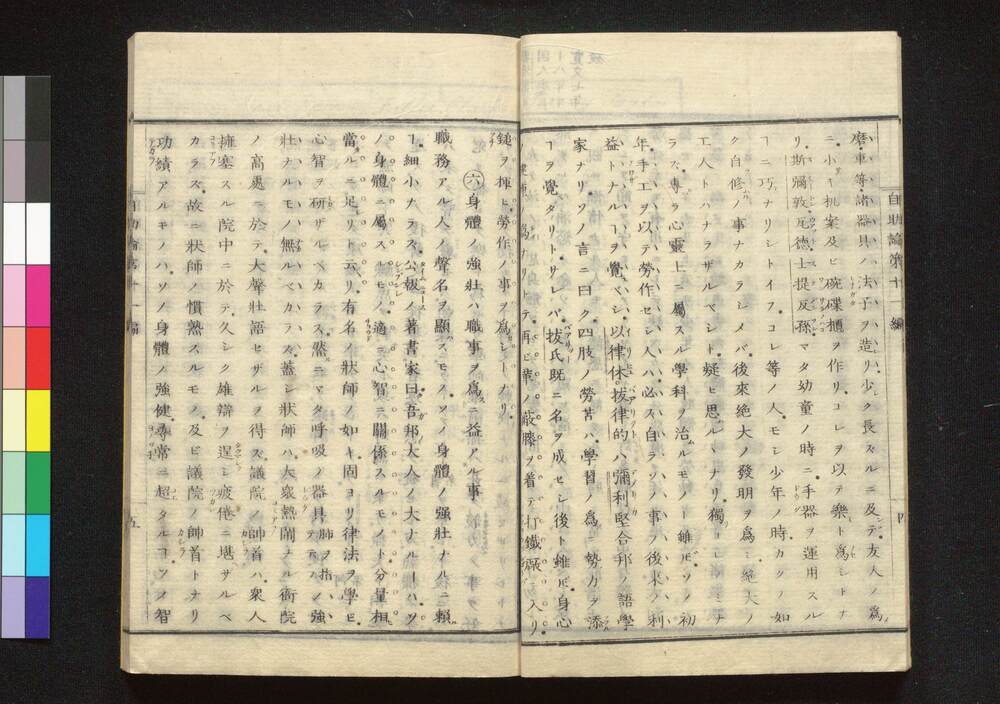 自助論第十一編
磨車等諸器具ノ法子ヲ造リ少ク長ズルニ及テ友人ノ爲
ニ小キ机案及ビ碗碟櫃ヲ作リコレヲ以テ樂ト爲シトナ
リ斯彌敦瓦德士提反孫マタ幼童ノ時ニ手器ヲ運用スル
ヿニ巧ナリシトイフコレ等ノ人モシ少年ノ時カクノ如
ク自修ノ事ナカラシメバ後來絶大ノ發明ヲ爲ミ絶大ノ
工人トハナラザルベシト疑ヒ思ハルヽナリ獨コレノミナ
ラズ專ラ心靈上ニ屬スル學科ノ治ルモノト雖ドモソノ初
年手工ヲ以テ勞作セシ人ハ必ス自ラソノ事ノ後來ノ利
益トナルヿヲ覺ベシ以律休拔律的ハ彌利堅合邦ノ語學
家ナリソノ言ニ曰ク四肢ノ勞苦ハ學習ノ爲ニ勢力ヲ添
ヿヲ覺タリトサレバ拔氏既ニ名ヲ成セシ後ト雖ドモ身心
爲ナリテ再ビ華ノ蔽膝ヲ着テ打鐵厰ニ入リ
四
鎚ヲ揮ヒ勞作ノ事ヲ爲シトナリ
㊅身體ノ強壯ハ職事ヲ爲ニ益アル事
職務アル人ノ聲名ヲ顯スモソノ身體ノ强壯ナルニ賴
ヿ細小ナラズ公報ノ著書家曰吾邦大人ノ大ナルヿハソ
ノ身體ニ屬スルモノ適ニ心智ニ關係スルモノト分量相
當ルニ足リト云リ有名ノ狀師ノ如キ固ヨリ律法ヲ學ビ
心智ヲ研ザルベカラズ然ニマタ呼吸ノ器具肺ヲ指ノ強
壯ナルモノ無ルベカラズ蓋シ狀師ハ大衆熱鬧ナル衙院
ノ高處ニ於テ大聲壯語セザルヲ得ズ議院ノ帥首ハ衆人
擁塞スル院中ニ於テ久シク雄辯ヲ逞シ疲倦ニ堪サルベ
カラズ故ニ狀師ノ慣熟スルモノ及ビ議院ノ帥首トナリ
功績アルモノハソノ身體ノ強健尋常ニ超タルヿソノ智
五